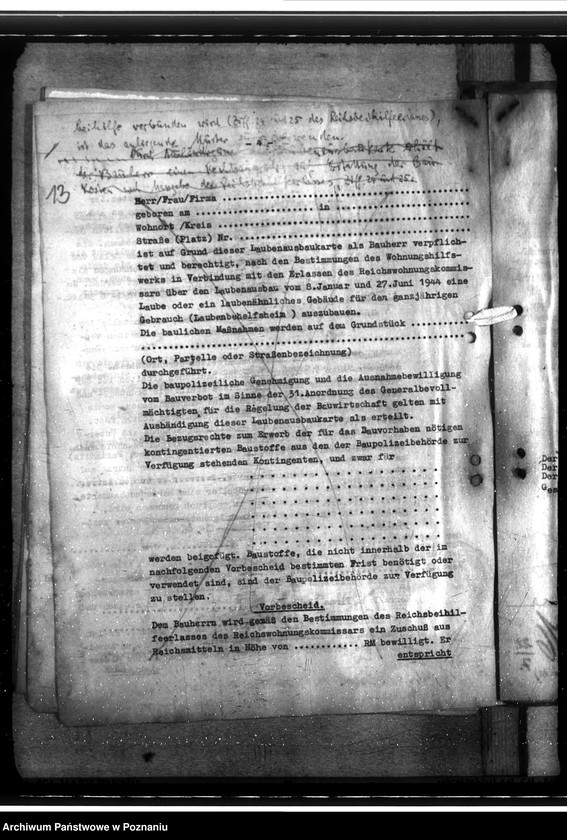 beihilfe verbunden wird (Ziff. 24 und 25 des Reichsbeihilfeerlasses),
ist das anliegende Muster
- 4 -
13
Herr/Frau/Firma ........................................
geboren am .................... in ....................
Wohnort /Kreis ........................................
Straße (Platz) Nr. ....................................
ist auf Grund dieser Laubenausbaukarte als Bauherr verpflich-
tet und berechtigt, nach den Bestimmungen des Wohnungshilfs-
werks in Verbindung mit den Erlassen des Reichswohnungskommis-
sars über den Laubenausbau vom 8.Januar und 27.Juni 1944 eine
Laube oder ein laubenähnliches Gebäude für den ganzjährigen
Gebrauch (Laubenbehelfsheim ) auszubauen.
Die baulichen Maßnahmen werden auf dem Grundstück ..........
............................................................
(Ort, Parzelle oder Straßenbezeichnung)
durchgeführt.
Die baupolizeiliche Genehmigung und die Ausnahmebewilligung
vom Bauverbot im Sinne der 31.Anordnung des Generalbevoll-
mächtigten für die Regelung der Bauwirtschaft gelten mit
Aushändigung dieser Laubenausbaukarte als erteilt.
Die Bezugsrechte zum Erwerb der für das Bauvorhaben nötigen
kontingentierten Baustoffe aus den der Baupolizeibehörde zur
Verfügung stehenden Kontingenten, und zwar für
werden beigefügt. Baustoffe, die nicht innerhalb der im
nachfolgenden Vorbescheid bestimmten Frist benötigt oder
verwendet sind, sind der Baupolizeibehörde zur Verfügung
zu stellen.
Vorbescheid.
Dem Bauherrn wird gemäß den Bestimmungen des Reichsbeihil-
feerlasses des Reichswohnungskommissars ein Zuschuß aus
Reichsmitteln in Höhe von ........... RM bewilligt. Er
entspricht
Der
Der
Der
Archiwum Państwowe w Poznaniu